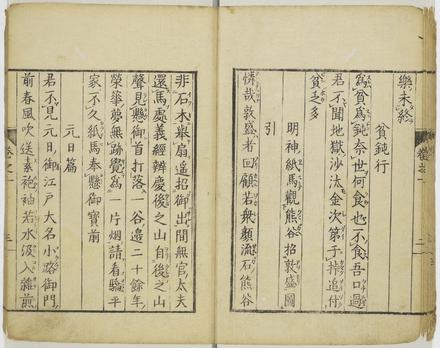 樂未終
貧鈍行
爲貧爲鈍奈世何食也不食吾口過
君不聞地獄沙汰金次第于挊追付
貧乏多
明神紙馬觀熊谷招敦盛圖
引
憐哉敦盛者回顧若衆顏流石熊谷
非石木擧扇遥招御出間無官太夫
還馬處義經辨慶後之山自後之山
聲見懸御首打落一谷邊二十餘年
榮華夢無跡覺爲一片烟請看驕平
家不久紙馬奉懸御寶前
元日篇
君不見元日御江戸大名小路御門
前春風吹送素袍袖若水汲入雜煎